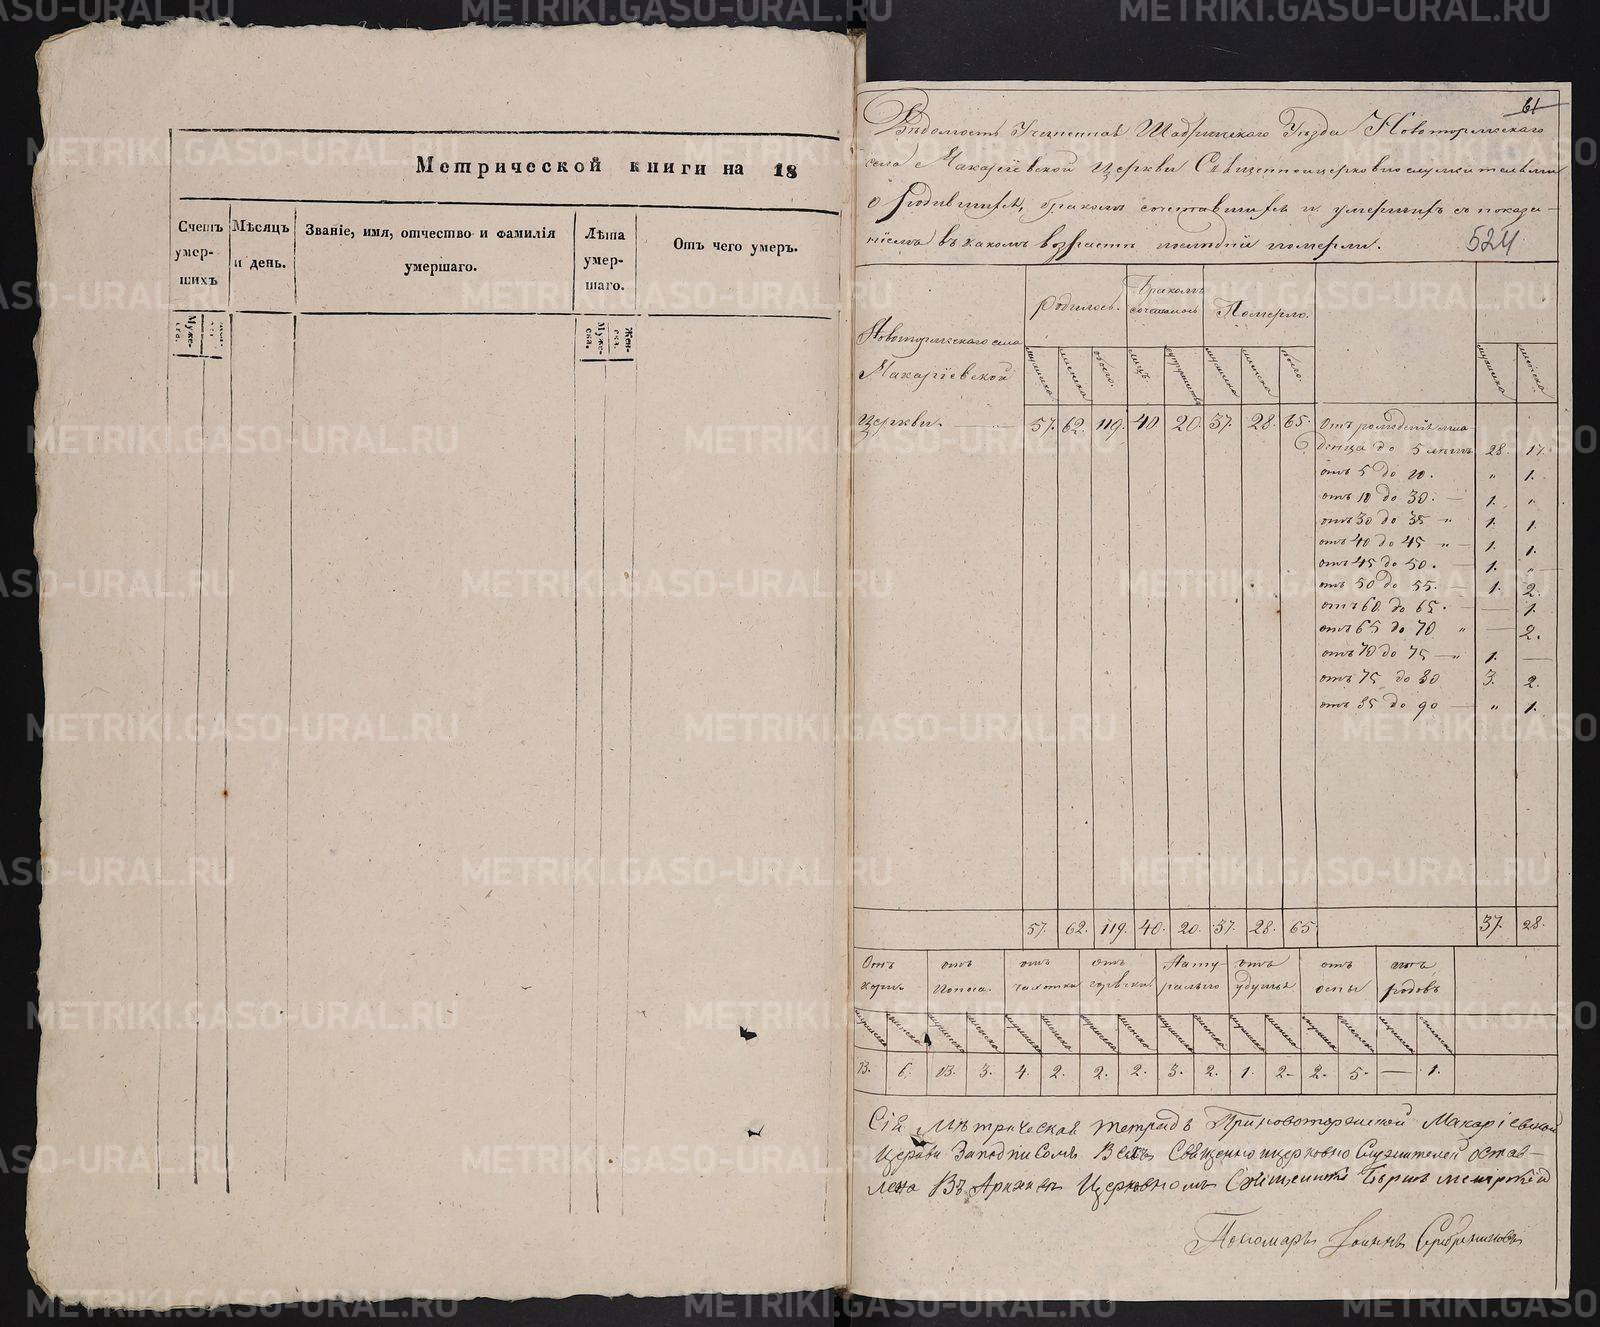 Метрической книги на 18
Счетъ умер- шихъ
Мѣсяцъ и день.
Званіе, имя, отчество и фамилія умершаго.
Лѣта умер- шаго.
Отъ чего умеръ.
Муже- ска.
Жен- ска.
Муже- ска.
Жен- ска.
61
Вѣдомость Учиненная Шадринскаго Уѣзда Новоторжскаго
села Макаріевской Церкви Священноцерковнослужителями
о родившихся, бракомъ сочетавшихся и умершихъ съ показа-
ніемъ въ какомъ возрастѣ померли.
524
Новоторжскаго села
Макаріевской
Церкви.
Родилось.
Бракомъ сочеталось
Померло.
мужеска женска обоего. лицъ мужеска женска обоего. мужеска женска
57. 62. 119. 40. 20. 37. 28. 65.
Отъ рожденія мла-
денца до 5 лѣтъ 28. 17.
отъ 5 до 10. " 1.
отъ 10 до 30. — 1. "
отъ 30 до 35 " 1. 1.
отъ 40 до 45 " — 1. 1.
отъ 45 до 50. — 1. "
отъ 50 до 55. — 1. 2.
отъ 60 до 65. — 1.
отъ 65 до 70 " — 2.
отъ 70 до 75 — " 1. —
отъ 75 до 80 3. 2.
отъ 85 до 90 — " 1.
57. 62. 119. 40. 20. 37. 28. 65 37. 28.
Отъ кори.
отъ поноса.
отъ чахотки
отъ горячки.
Нату- рально
отъ удушья
отъ оспы
отъ родовъ
мужеска женска мужеска женска мужеска женска мужеска женска мужеска женска мужеска женска мужеска женска мужеска женска
13. 6. 13. 3. 4. 2. 2. 2. 3. 2. 1. 2. 2. 5. — 1.
Сія Метрическая тетрадь При новоторжской Макаріевской
Церкви За подписомъ Всехъ Священно и церковно Служителей остав-
лена Въ Архивѣ Церковномъ Священникъ
Пономарь Іоаннъ Серебренниковъ
METRIKI.GASO-URAL.RU